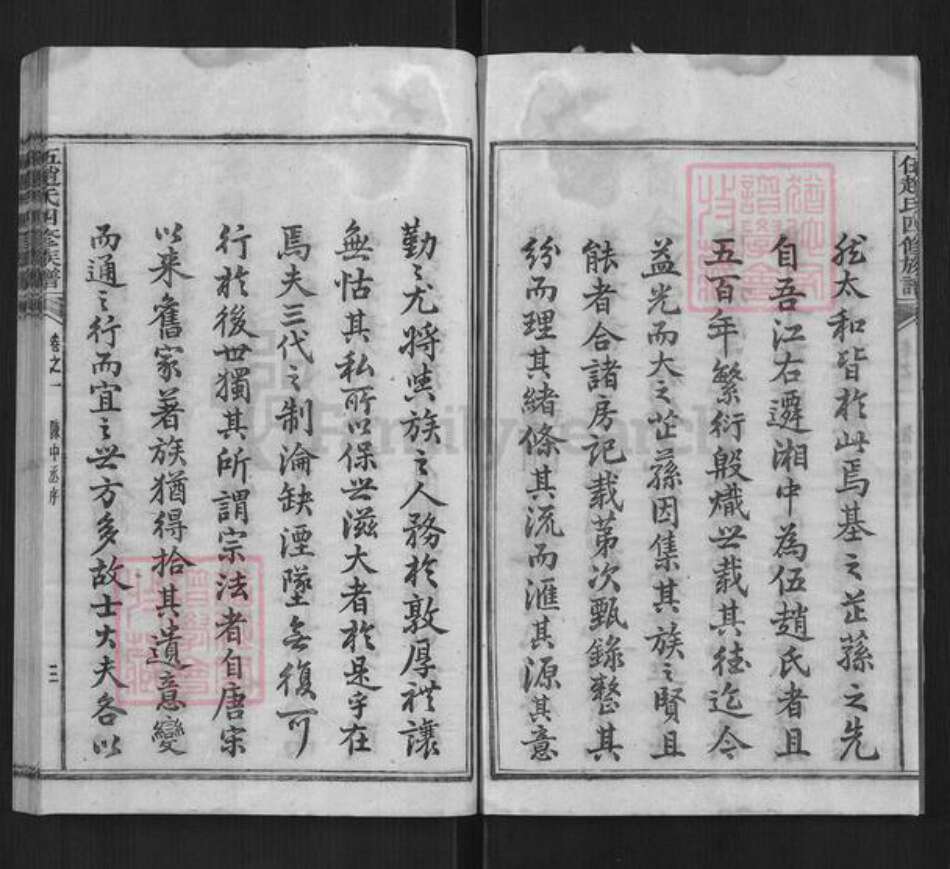 伍趙氏四修族譜
然太和皆於此焉基之芷蓀之先
自吾江右遷湘中為伍趙氏者且
五百年繁衍殷熾世載其德迄今
益光而大之芷蓀因集其族之賢且
能者合諸房記載第次甄錄整其
紛而理其緒條其流而滙其源其意
勤之尤將使族之人務於敦厚礼讓
無怙其私所以保世滋大者於是乎在
焉夫三代之制淪缺湮墜無復可
行於後世獨其所謂宗法者自唐宋
以来舊家著族猶得拾其遺意變
而通之行而宜之世方多故士大夫各以
伍趙氏四修族譜
卷之一
陳中丞序
三
FamilySearch